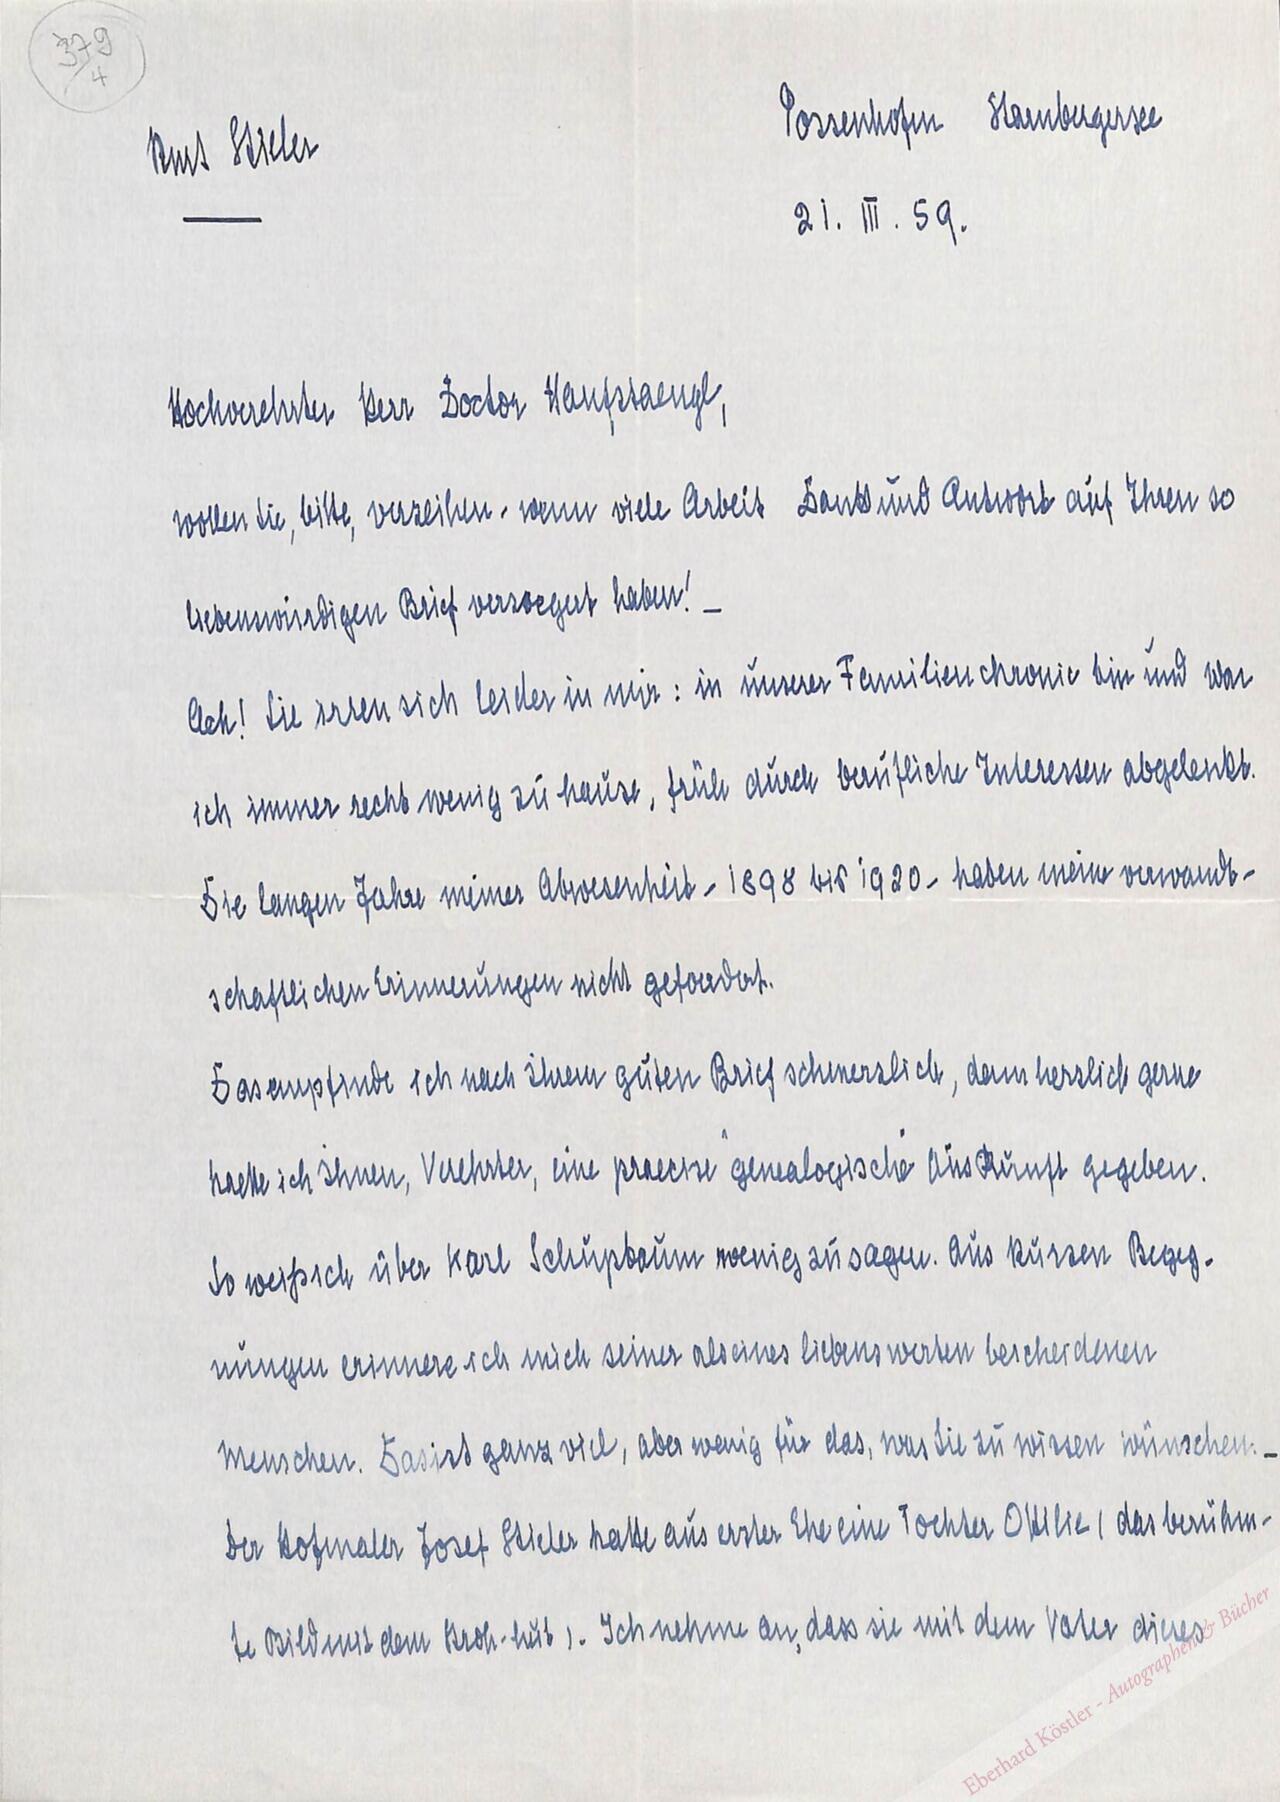 379
4
Kurt Stieler
Possenhofen Starnbergersee
21. III. 59.
Hochverehrter Herr Doctor Hanfstaengl,
wollen Sie, bitte, verzeihen, wenn viele Arbeit Dank und Antwort auf Ihren so
liebenswürdigen Brief verzoegert haben! –
Ach! Sie irren sich leider in mir: in unserer Familienchronic bin und war
ich immer recht wenig zu hause, früh durch berufliche Interessen abgelenkt.
Die langen Jahre meiner Abwesenheit – 1898 bis 1920 – haben meine verwandt-
schaftlichen Erinnerungen nicht gefoerdert.
Das empfinde ich nach Ihrem guten Brief schmerzlich, denn herzlich gerne
haette ich Ihnen, Verehrter, eine praecise "genealogische" Auskunft gegeben.
So weiß ich über Karl Schupbaum wenig zu sagen. Aus kurzen Begeg-
nungen erinnere ich mich seiner als eines liebenswerten bescheidenen
Menschen. Das ist ganz viel, aber wenig für das, was Sie zu wissen wünschen. –
Der Hofmaler Josef Stieler hatte aus erster Ehe eine Tochter Ottilie (das berühm-
te Bild mit dem Stroh-hut). Ich nehme an, dass sie mit dem Vater dieses
Eberhard Köstler - Autographen & Bücher